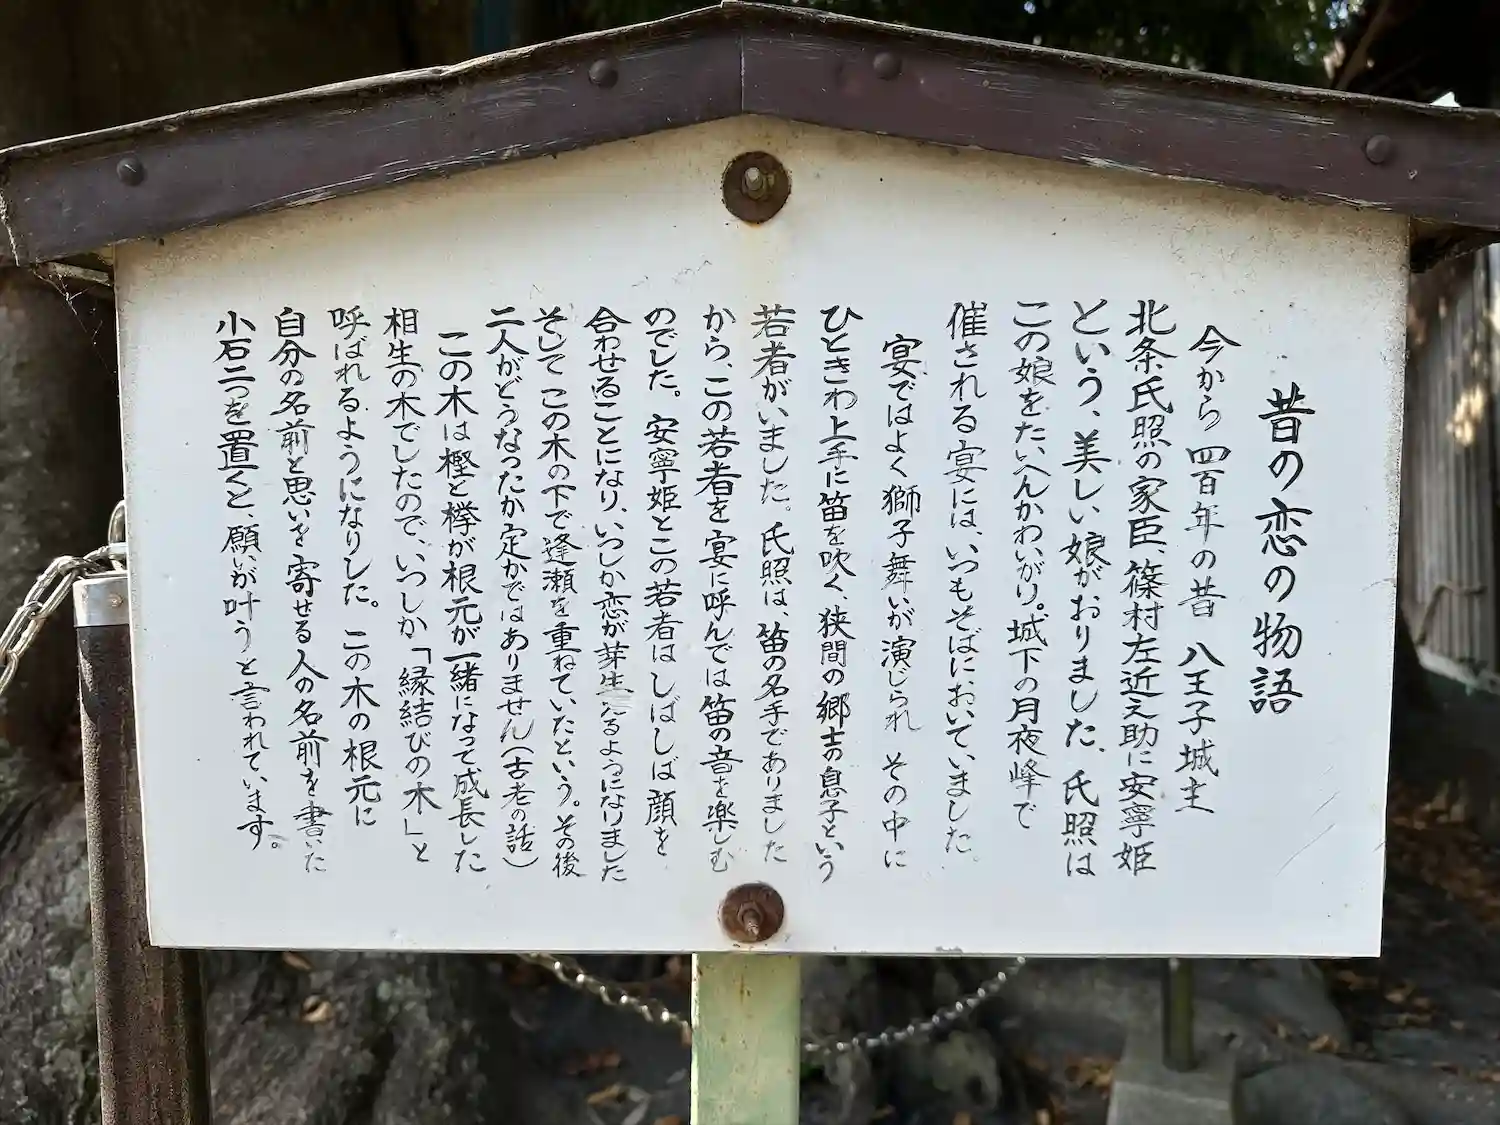 昔の恋の物語
今から四百年の昔 八王子城主
北条氏照の家臣、篠村左近之助に安寧姫
という、美しい娘がおりました、氏照は
この娘をたいへんかわいがり。城下の月夜峰で
催される宴には、いつもそばにおいていました。
宴ではよく獅子舞いが演じられ その中に
ひときわ上手に笛を吹く、狭間の郷士の息子という
若者がいました。氏照は、笛の名手でありました
から、この若者を宴に呼んでは笛の音を楽しむ
のでした。安寧姫とこの若者はしばしば顔を
合わせることになり、いつしか恋が芽生えるようになりました
そして この木の下で逢瀬を重ねていたという。その後
二人がどうなったか定かではありません(古老の話)
この木は樫と欅が根元が一緒になって成長した
相生の木でしたので、いつしか「縁結びの木」と
呼ばれるようになりした。この木の根元に
自分の名前と思いを寄せる人の名前を書いた
小石二つを置くと、願いが叶うと言われています。